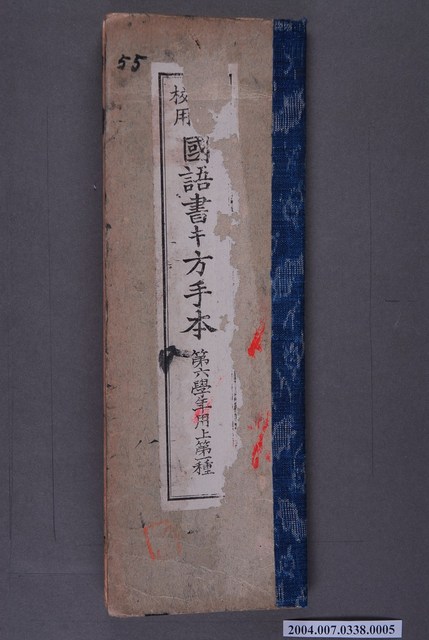 55
校用
國語書キ方手本
第六學年用上第一種
2004.007.0338.0005